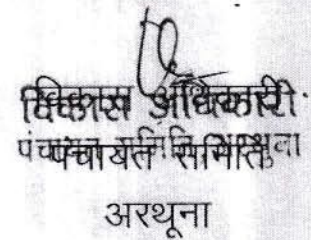 विकास अधिकारी
पंचायत समिति
अरथूना